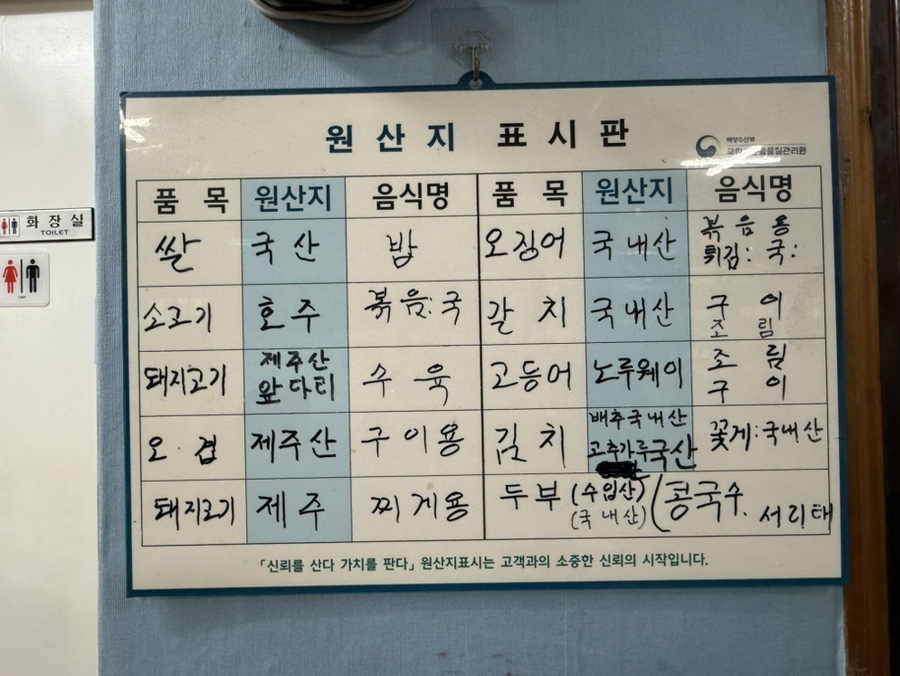 원산지 표시판
해양수산부
품목 원산지 음식명 품목 원산지 음식명
쌀 국산 밥
오징어 국내산 볶음용
튀김: 국:
소고기 호주 볶음: 국
갈치 국내산 구이
조림
돼지고기 제주산
앞다리 수육
고등어 노루웨이 조림
구이
오겹 제주산 구이용
김치 배추국내산
고추가루국산 꽃게:국내산
돼지고기 제주 찌게용
두부 (수입산)
(국내산) (콩국수. 서리태
「신뢰를 산다 가치를 판다」 원산지표시는 고객과의 소중한 신뢰의 시작입니다.
화장실
TOILET